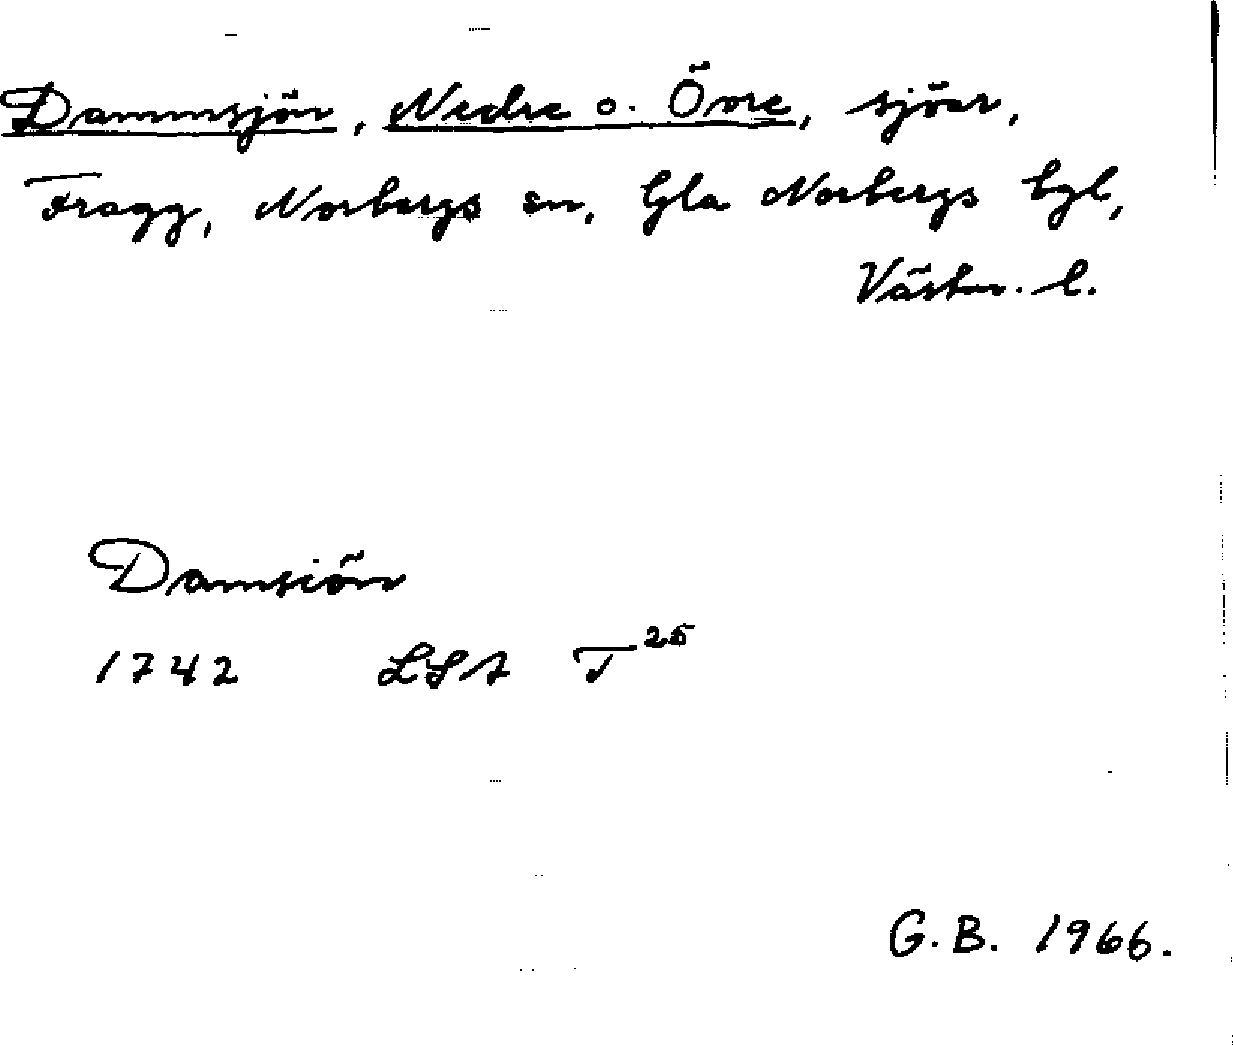 Dammsjön, Nedre o. Övre, sjöar,
Fragg, Norbergs sn, Gla Norbergs bgl,
Västm. l.
Damsiön
1742 LSA T25
G.B. 1966.